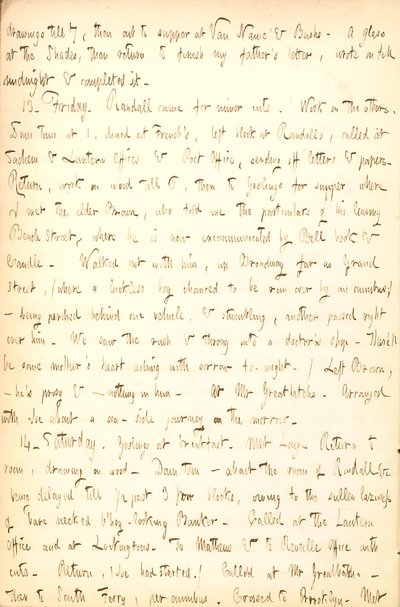 drawings till 7, then out to supper at Van Name & Bushs - A glass
at the Shades, then return to finish my father's letter, wrote on till
midnight & completed it -
13. Friday. Randall came for minor cuts. Work on the others.
Down town at 1, dined at French's, left block at Randalls, called at
& Lantern Offices & Post Office, sending off letters & papers.
Return, work on wood till 6, then to Goslings for supper, where
I met the elder Brown, who told me the particulars of his leaving
Beach Street, where he is now excommunicated by Bell book &
Candle - Walked out with him, up Broadway far as Grand
Street, (where a luckless boy chanced to be run over by an omnibus;)
- being perched behind one vehicle, & stumbling, another passed right
over him - We saw the rush & throng into a doctor's shop - There'll
be some mother's heart aching with sorrow to-night. / Left Brown,
- he's prosy & - nothing in him - At Mr Greatbatchs. Arranged
with Joe about a sea-side journey on the morrow.
14. Saturday. Goslings at breakfast. Met Long. Return to
room, drawing on wood - Down town - about the room of Randall &c
being delayed till 1/2 past 3 for blocks, owing to the sullen laziness
of bare necked b'hoy-looking Banker - Called at the Lantern
Office and at Larkingtons. To Mathews & to Reveille office with
cuts - Return, (Joe had started.) Called at Mr Greatbatchs -
then to South Ferry, per omnibus. Crossed to Brooklyn. Met